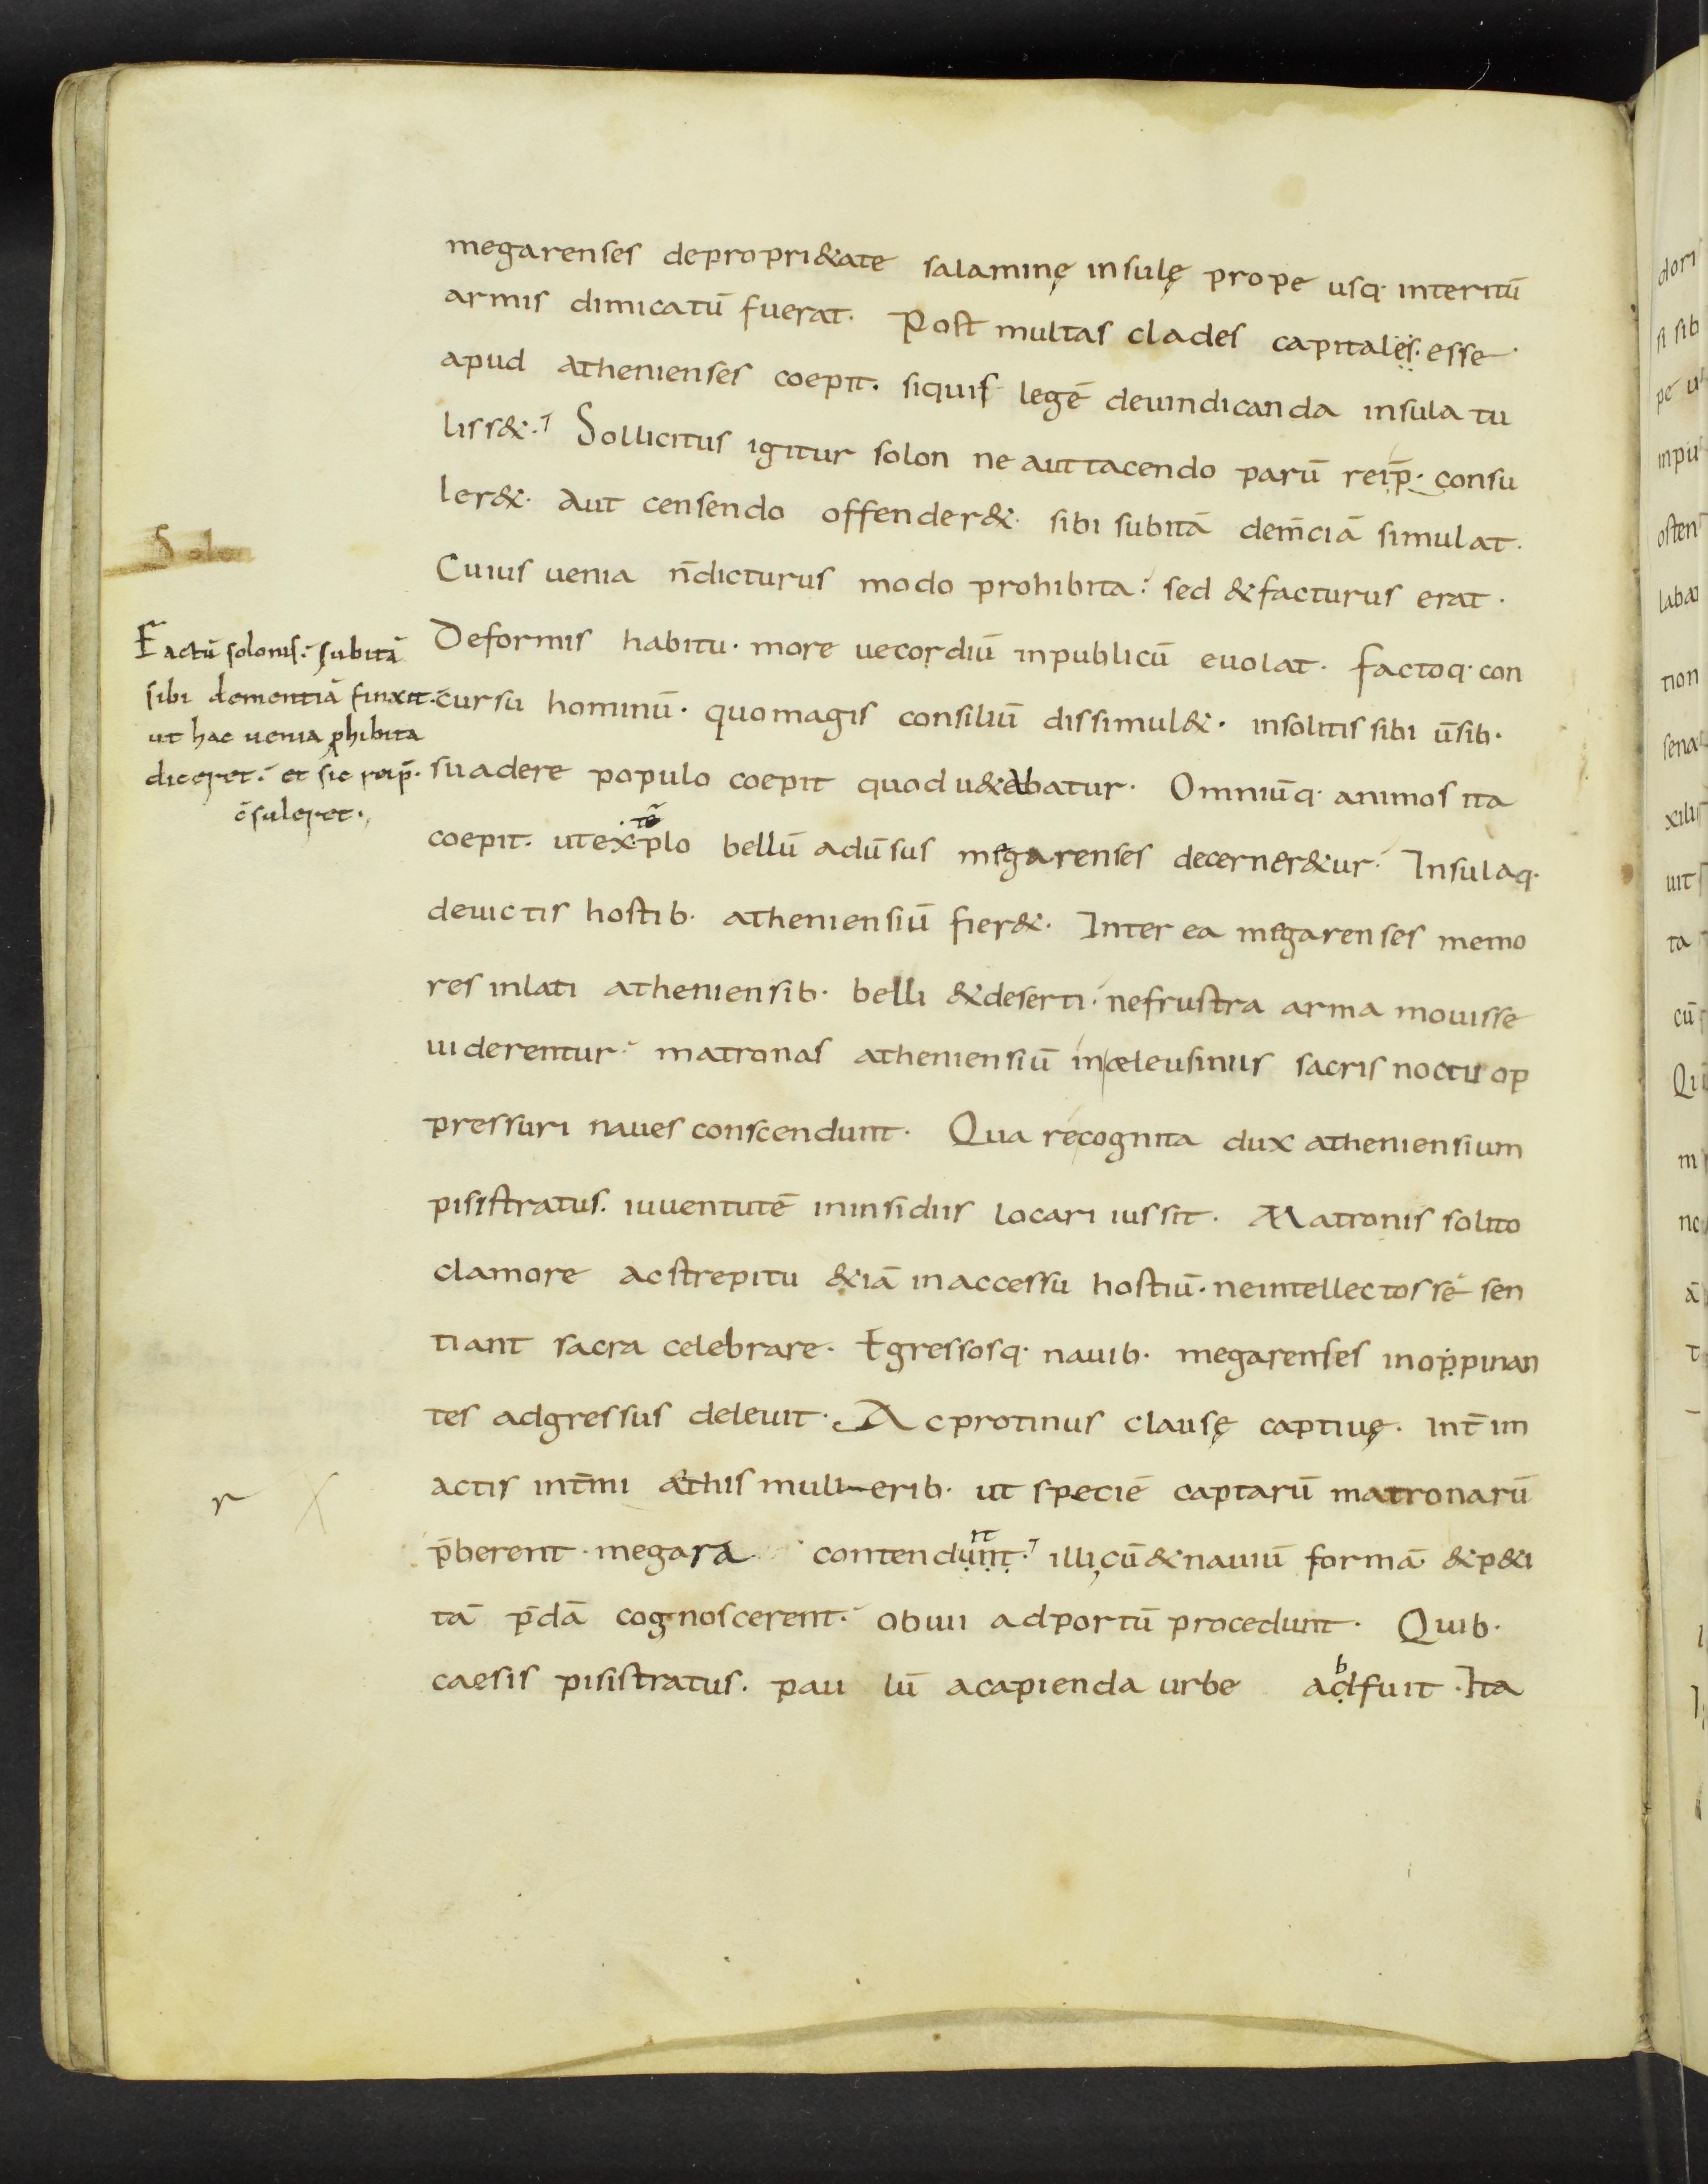 megarenses depropri&ate salaminę insulę prope usq· interitū
armis dimicatū fuerat. Post multas clades capitales. esse
apud athenienses coepit. siquis legē deuindicanda insula tu
liss&. Sollicitus igitur solon ne aut tacendo parū reip̄. consu
ler&. Aut censendo offender&. sibi subitā dem̄ciā simulat.
Cuius uenia n̄dicturus modo prohibita: sed &facturus erat.
Deformis habitu. more uecordiū inpublicū euolat. factoq· con
Solon
Factū solonis: subitā
sibi dementiā finxit.
ut hac uenia ꝓhibita
diceret: et sic reip̄.
c̄suleret.
cursu hominū. quomagis consiliū dissimul&. insolitis sibi ūsib·
suadere populo coepit quod u&abatur. Omniūq· animos ita
coepit. utex·tē·plo bellū adūsus megarenses decerner&ur. Insulaq·
deuictis hostib· atheniensiū fier&. Inter ea megarenses memo
res inlati atheniensib· belli &deserti. nefrustra arma mouisse
uiderentur. matronas atheniensiū in æleusiniis sacris noctu op
pressuri naues conscendunt. Qua recognita dux atheniensium
pisistratus. iuuentutē ininsidiis locari iussit. Matronis solito
clamore acstrepitu &iā inaccessu hostiū. neintellectos sē sen
tiant sacra celebrare. Egressosq· nauib· megarenses inoppinan
tes adgressus deleuit. Ac protinus clausę captiuę. int̄im
actis int̄mi athis mulierib· ut speciē captarū matronarū
r
p̄berent. megara contendunt. rt illi cū &nauiū formā &p&i
tā p̄dā cognoscerent. obuii adportū procedunt. Quib·
caesis pisistratus. pau lū acapienda urbe adfuit b. Ita